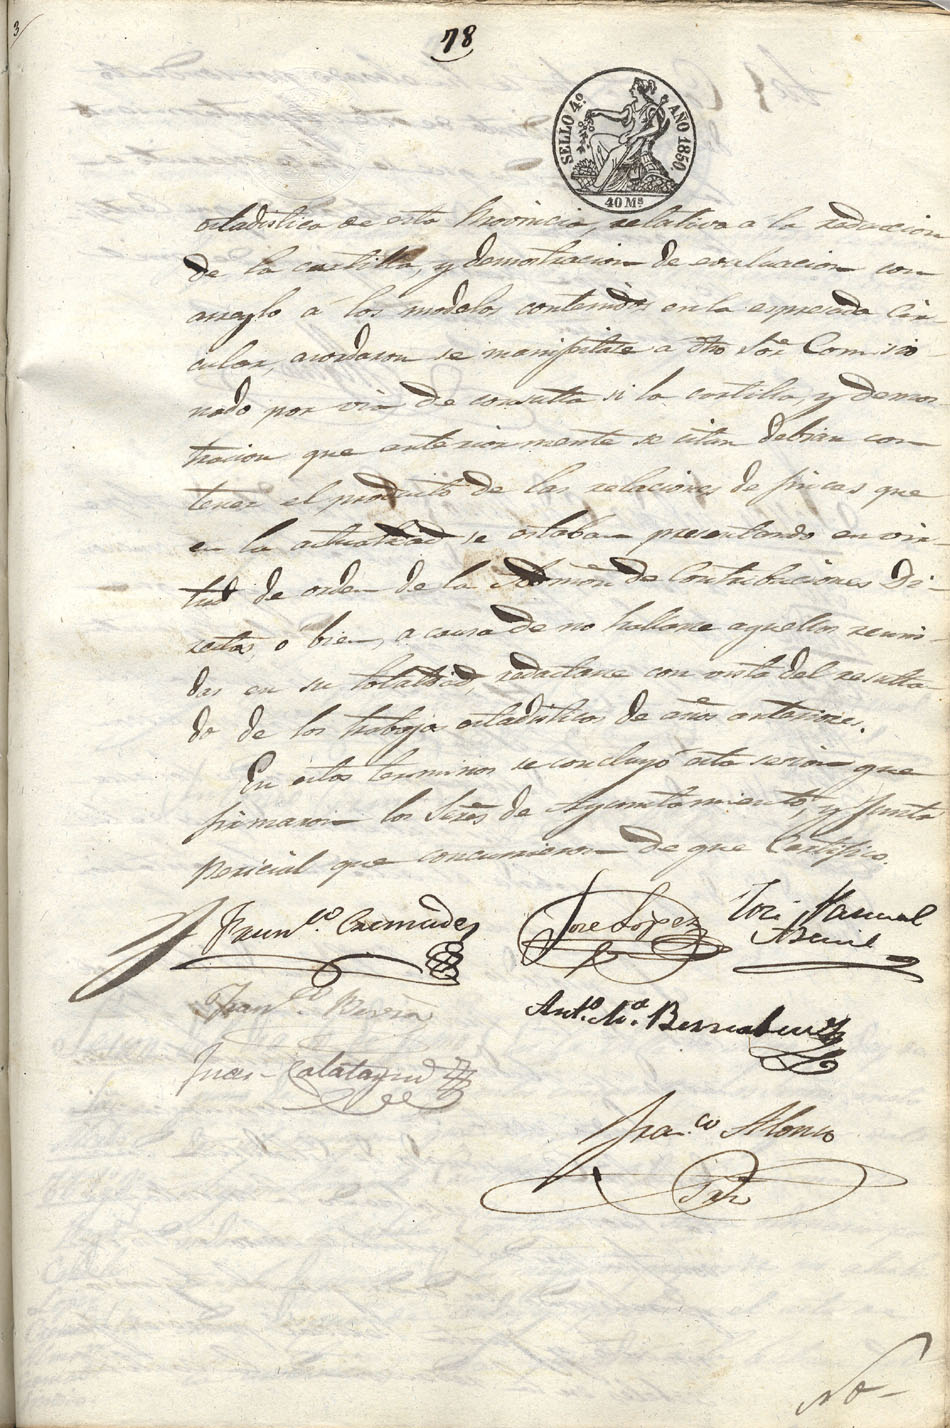 3
78
SELLO 4º. AÑO 1850.
40 Ms
estadistica de esta Provincia, relativa a la redaccion
de la cartilla, y demostracion de evaluacion con
arreglo a los modelos contenidos en la espresada Cir-
cular, acordaron se manifestase a dho Sor. Comisio-
nado por via de consulta si la cartilla, y demos-
tracion que anteriormente se citan debian con-
tener el producto de las relaciones de fincas que
en la actualidad se estaban presentando en vir-
tud de orden de la Admon. de Contribuciones Di-
rectas, o bien, a causa de no hallarse aquellas reuni-
das en su totalidad, redactarse con vista del resulta-
do de los trabajos estadisticos de años anteriores.
En estos terminos se concluyó esta sesion que
firmaron los Sres. de Ayuntamiento, y Junta
Pericial que concurrieron de que Certifico.
Franco. Cremades
Jose Lopez
José Manuel
Antº. Mª. Bernabeu
Juan Calatayud
Franco Alonso